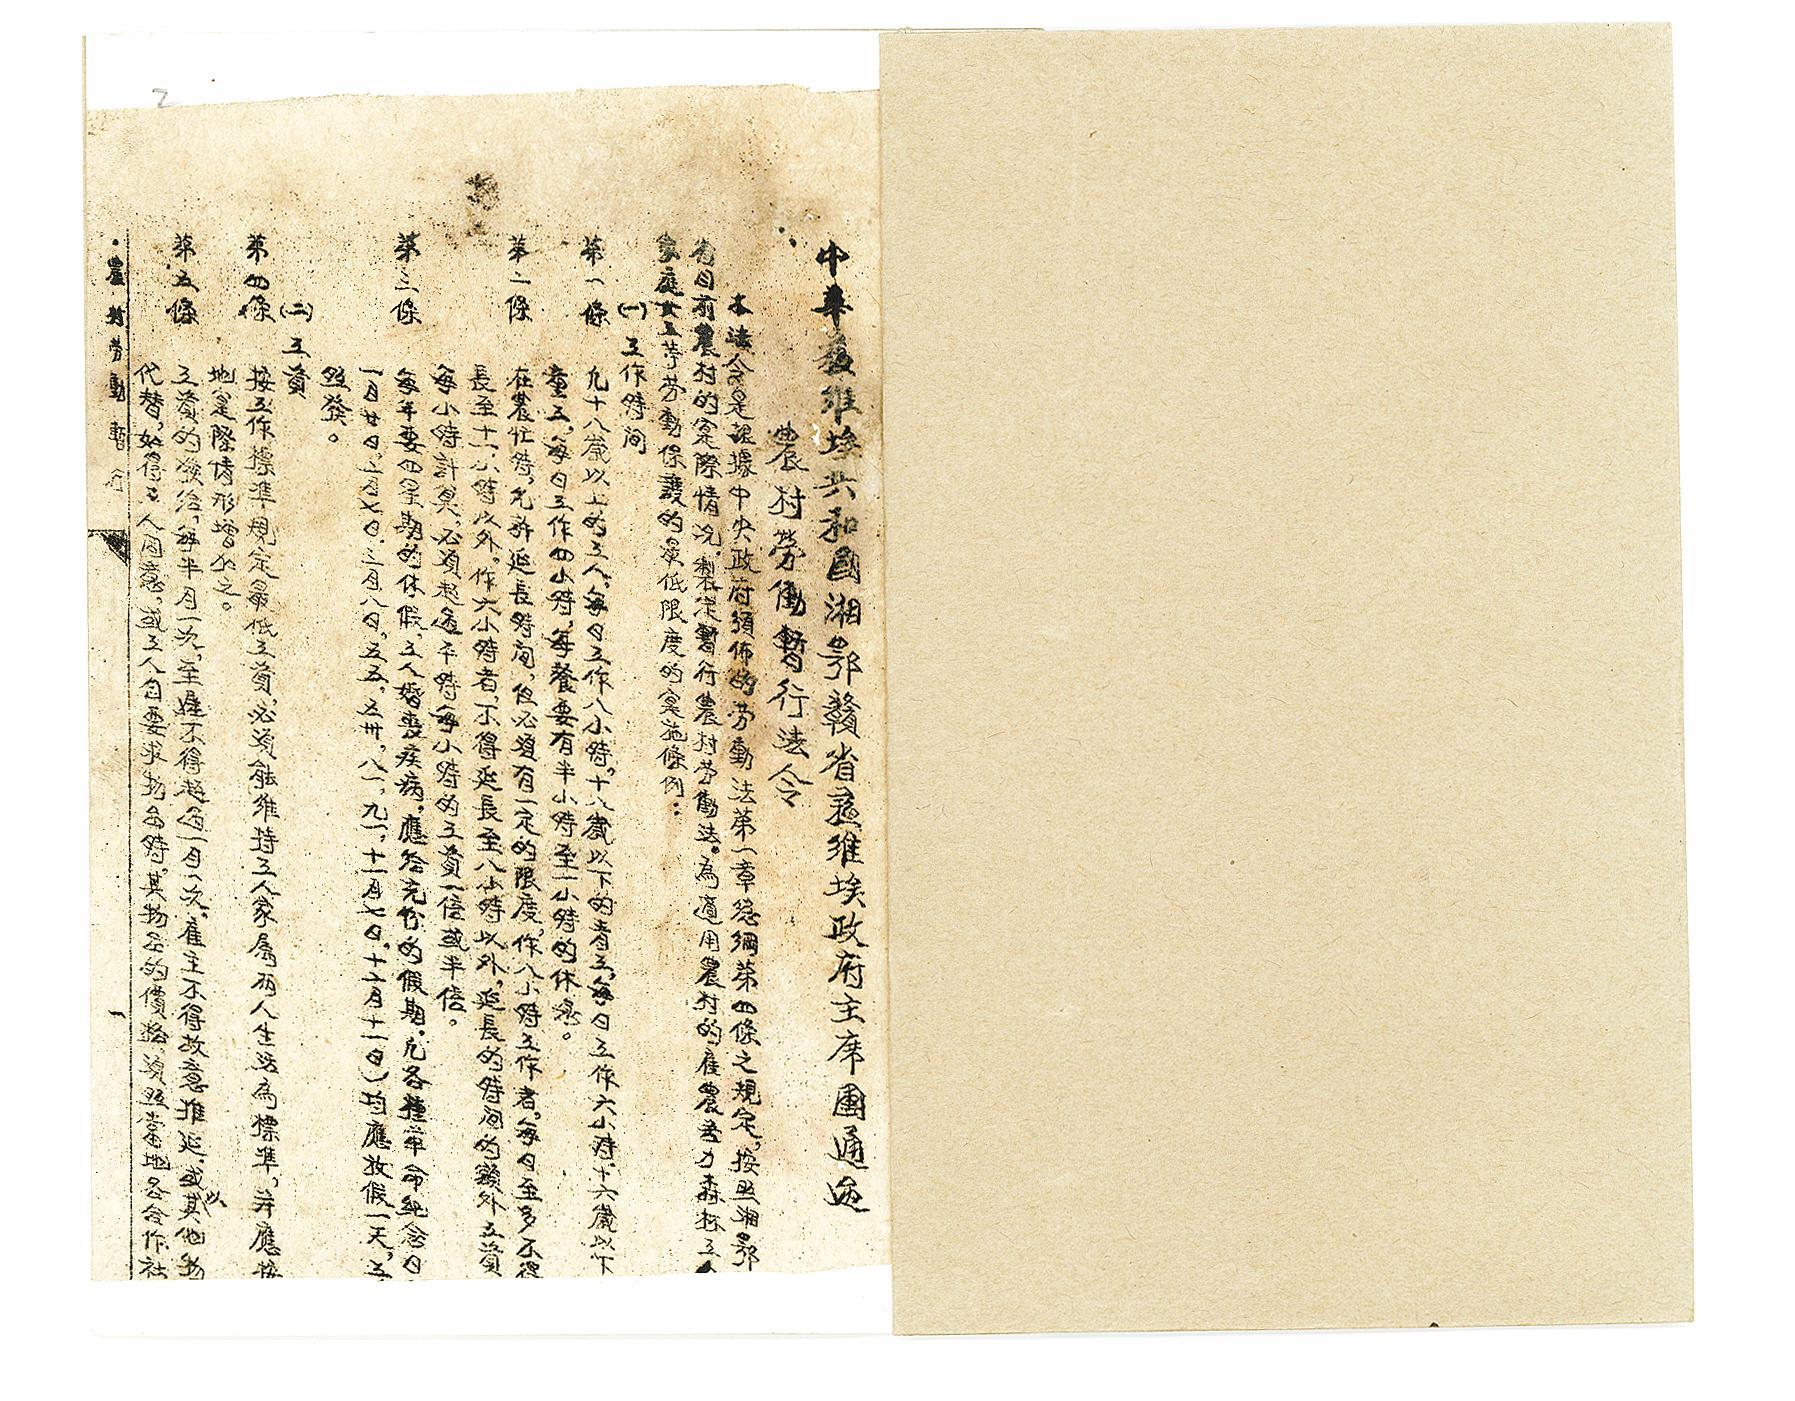 中華蘇維埃共和國湘鄂贛省蘇維埃政府主席團通過
農村勞働暫行法令
本法令是根據中央政府頒佈的勞動法第一章總綱第四條之規定，按照湘鄂
省目前農村的寔際情況，製定暫行農村勞動法。為適用農村的雇農苦力森林工人
家庭女工等勞動保護的最低限度的寔施條例：
(一)工作時间
第一條 凡十八歲以上的工人，每日工作八小時，十八歲以下的青工，每日工作六小時，十六歲以下
童工，每日工作四小時，每餐要有半小時至一小時的休息。
第二條 在農忙時，允許延長時间，但必須有一定的限度，作八小時工作者，每日至多不得
長至十一小時以外。作六小時者，不得延長至八小時以外，延長的時间的額外工資
每小時計算，必須超过平時每小時的工資一倍或半倍。
第三條 每年要四星期的休假，工人婚喪疾病，應給充份的假期，凡各種革命紀念日
一月廿日，二月七日，三月八日，五五，五卅，八一，九一，十一月七日，十二月十一日)均應放假一天，工
照發。
(二)工資
第四條 按工作標準規定最低工資，必須能維持工人家属兩人生活為標準，并應按
地寔際情形增加之。
第五條 工資的發給，每半月一次，至遲不得超过一月一次，雇主不得故意推延，或以其他物
代替，如得工人同意，或工人自要求物品時，其物品的價格，須照當地各合作社
·農村勞動暫行
一
2